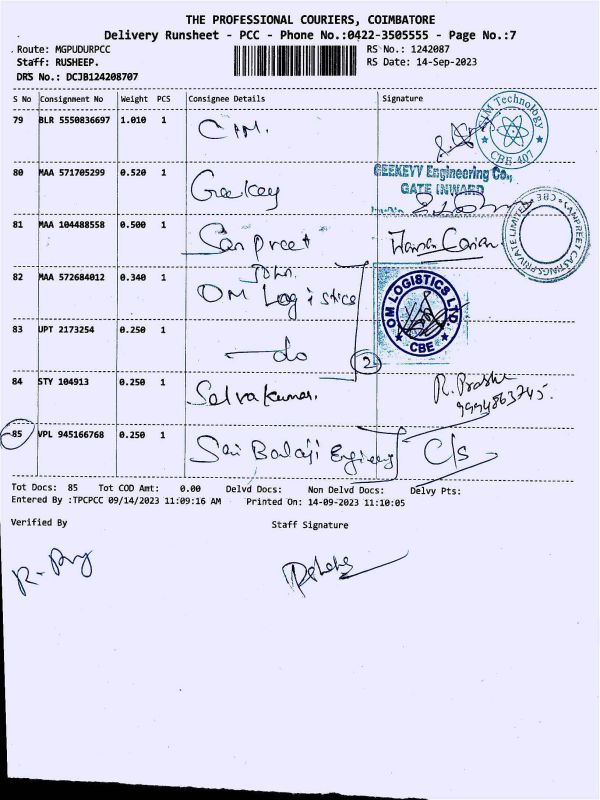 THE PROFESSIONAL COURIERS, COIMBATORE
Delivery Runsheet - PCC - Phone No.:0422-3505555 - Page No.:7
Route: MGPUDURPCC
RS No.: 1242087
Staff: RUSHEEP.
RS Date: 14-Sep-2023
DRS No.: DCJB124208707
S No Consignment No Weight PCS Consignee Details Signature
79 BLR 5550836697 1.010 1
Technology
CBE-407
80 MAA 571705299 0.520 1 Geekey
GEEKEYY Engineering Co.,
GATE INWARD
81 MAA 104488558 0.500 1 San preet
SANPREET CASTINGS PRIVATE LIMITED * CBE *
82 MAA 572684012 0.340 1 OM Logistics
OM LOGISTICS LTD.
CBE
83 UPT 2173254 0.250 1 do
2
84 STY 104913 0.250 1 Selvakumar.
85 VPL 945166768 0.250 1 Sai Balaji C/s
Tot Docs: 85 Tot COD Amt: 0.00 Delvd Docs: Non Delvd Docs: Delvy Pts:
Entered By :TPCPCC 09/14/2023 11:09:16 AM Printed On: 14-09-2023 11:10:05
Verified By Staff Signature